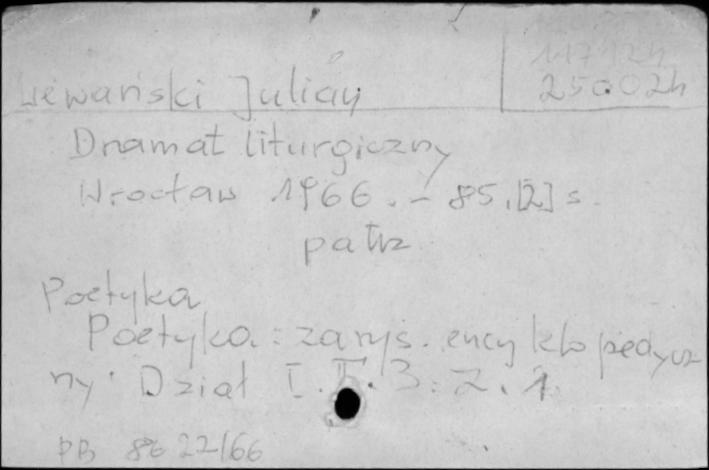 117124
250024
Lewański Julian
Dramat liturgiczny
Wrocław 1966. – 85, [2] s.
patrz
Poetyka
Poetyka : zarys. encyklopedycz
ny. Dział I. T. 3 : Z. 1.
PB 8622/66